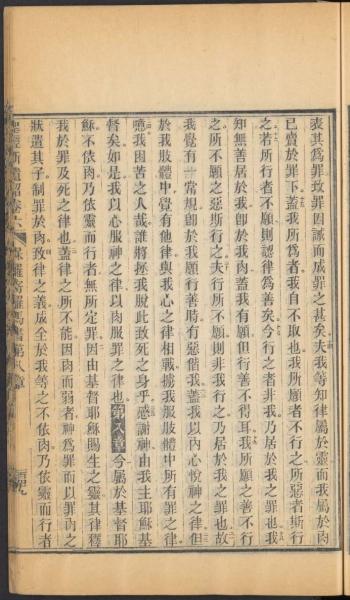 表其爲罪致罪因誡而成罪之甚矣夫我等知律屬於靈而我屬於肉
已賣於罪下蓋我所爲者我自不取也我所願者不行之所惡者斯行
之若所行者不願則認律爲善矣今行之者非我乃居於我之罪也我
知無善居於我卽於我肉蓋我有願但行善不得耳我所願之善不行
之所不願之惡斯行之夫行所不願則非我行之乃居於我之罪也故
我覺有一常規卽於我願行善時有惡偕我蓋我以內心悅神之律但
於我肢體中覺有他律與我心之律相戰擄我服肢體中所有罪之律
噫我困苦之人哉誰將拯我脫此致死之身乎感謝神由我主耶穌基
督矣如是我以心服神之律以肉服罪之律也第八章今屬於基督耶
穌不依肉乃依靈而行者無所定罪因由基督耶穌賜生之靈其律釋
我於罪及死之律也蓋律之所不能因肉而弱者神爲罪而以罪肉之
狀遣其子制罪於肉致律之義成全於我等之不依肉乃依靈而行者
聖經新遺詔卷六 保羅寄羅馬書第八章